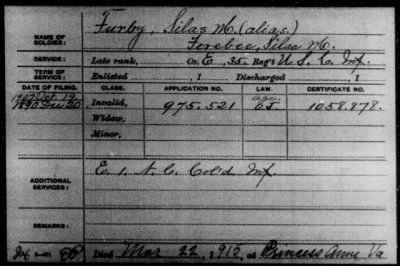 NAME OF SOLDIER:
Furby, Silas M. (alias)
Ferebee, Silas M.
SERVICE:
Late rank, Co. E, 35. Reg't U.S.C. Inf.
TERM OF SERVICE:
Enlisted , 1 Discharged , 1
DATE OF FILING. CLASS. APPLICATION NO. LAW. CERTIFICATE NO.
Oct. 19
1890 Dec. 20 Invalid, 975.521 1058.878.
Widow,
Minor,
ADDITIONAL SERVICES:
E. 1. N.C. Col'd Inf.
REMARKS:
Died Mar 22, 1913, at Princess Anne Va